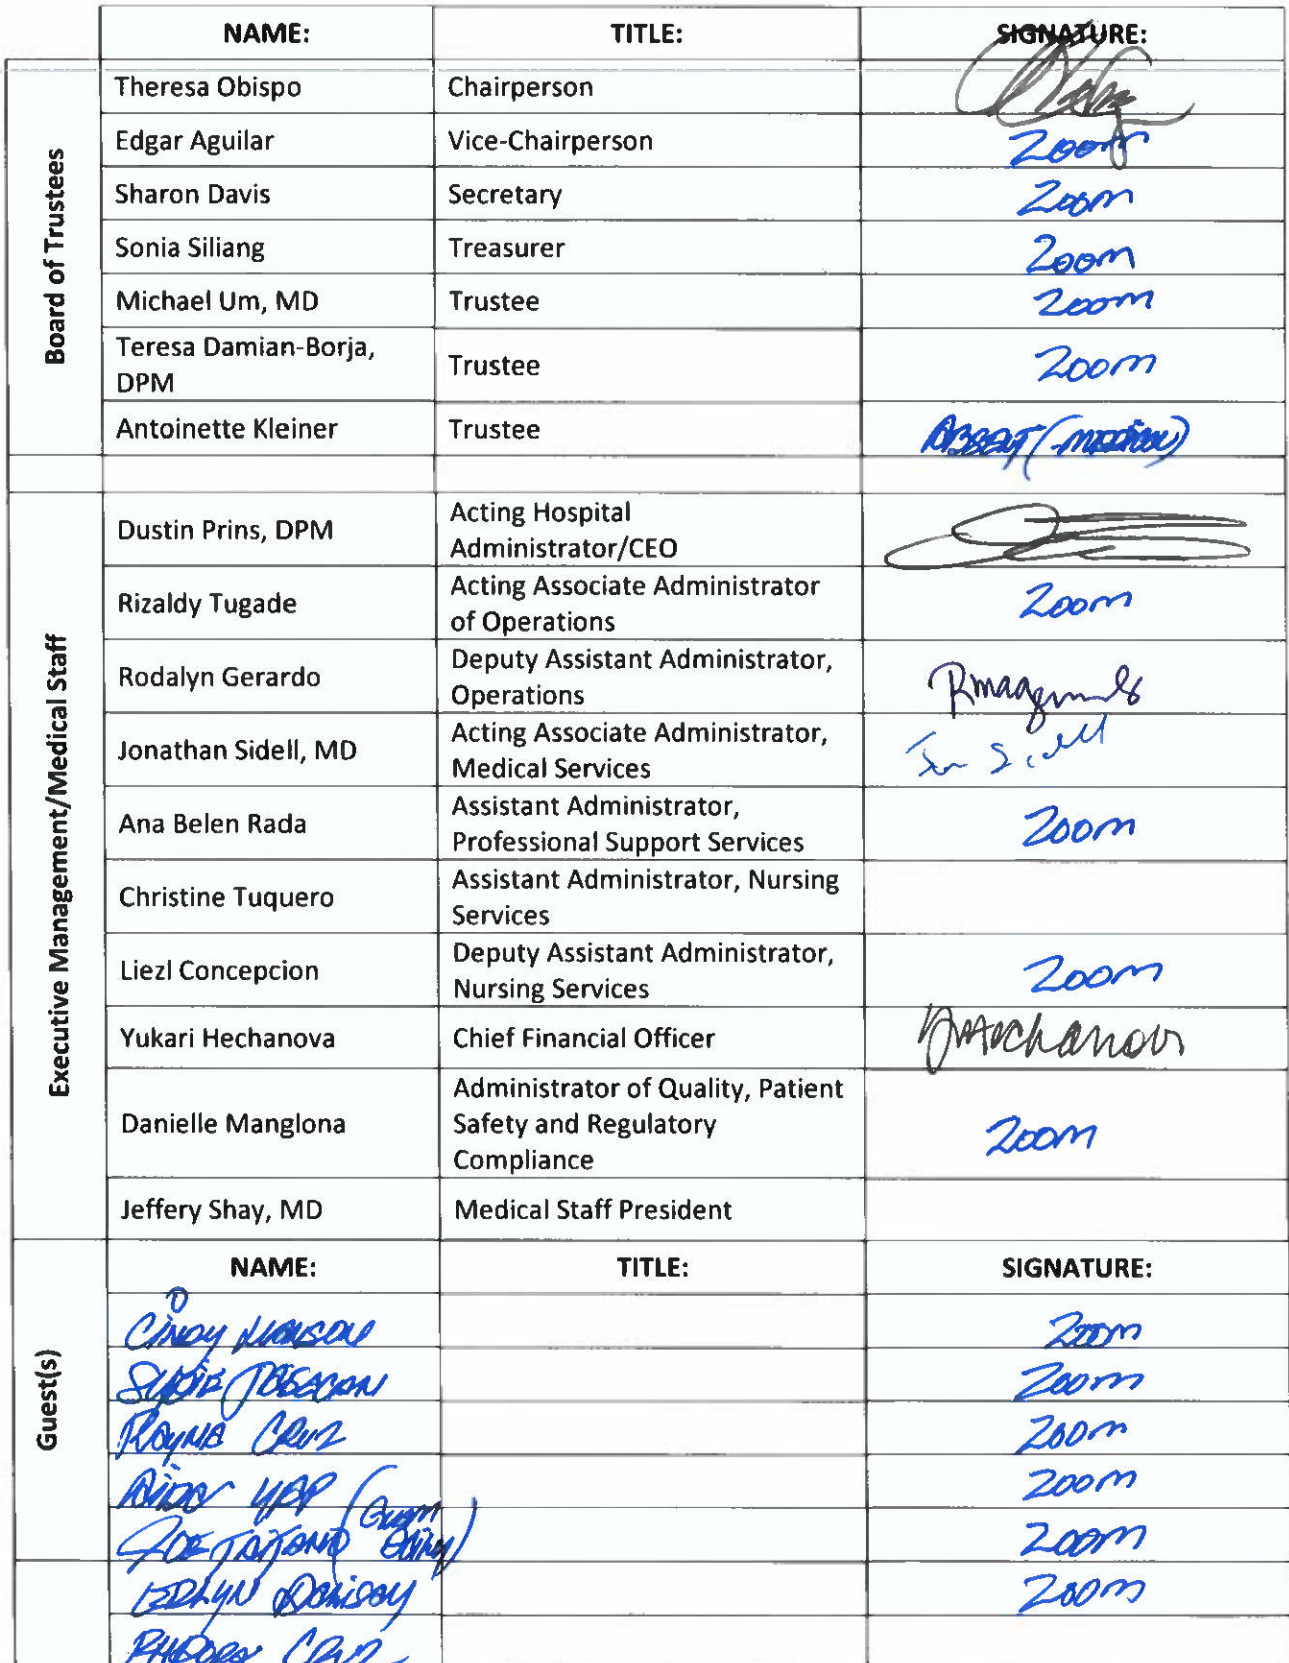 NAME: TITLE: SIGNATURE:
Board of Trustees
Theresa Obispo Chairperson
Edgar Aguilar Vice-Chairperson Zoom
Sharon Davis Secretary Zoom
Sonia Siliang Treasurer Zoom
Michael Um, MD Trustee Zoom
Teresa Damian-Borja,
DPM Trustee Zoom
Antoinette Kleiner Trustee ABSENT (MEDICAL)
Executive Management/Medical Staff
Dustin Prins, DPM Acting Hospital
Administrator/CEO
Rizaldy Tugade Acting Associate Administrator
of Operations Zoom
Rodalyn Gerardo Deputy Assistant Administrator,
Operations
Jonathan Sidell, MD Acting Associate Administrator,
Medical Services Jon Sidell
Ana Belen Rada Assistant Administrator,
Professional Support Services Zoom
Christine Tuquero Assistant Administrator, Nursing
Services
Liezl Concepcion Deputy Assistant Administrator,
Nursing Services Zoom
Yukari Hechanova Chief Financial Officer
Danielle Manglona Administrator of Quality, Patient
Safety and Regulatory
Compliance Zoom
Jeffery Shay, MD Medical Staff President
Guest(s)
NAME: TITLE: SIGNATURE:
CINDY Zoom
Zoom
CRUZ Zoom
YAP Zoom
JOE TAITANO (Guam Zoom
Zoom
CRUZ